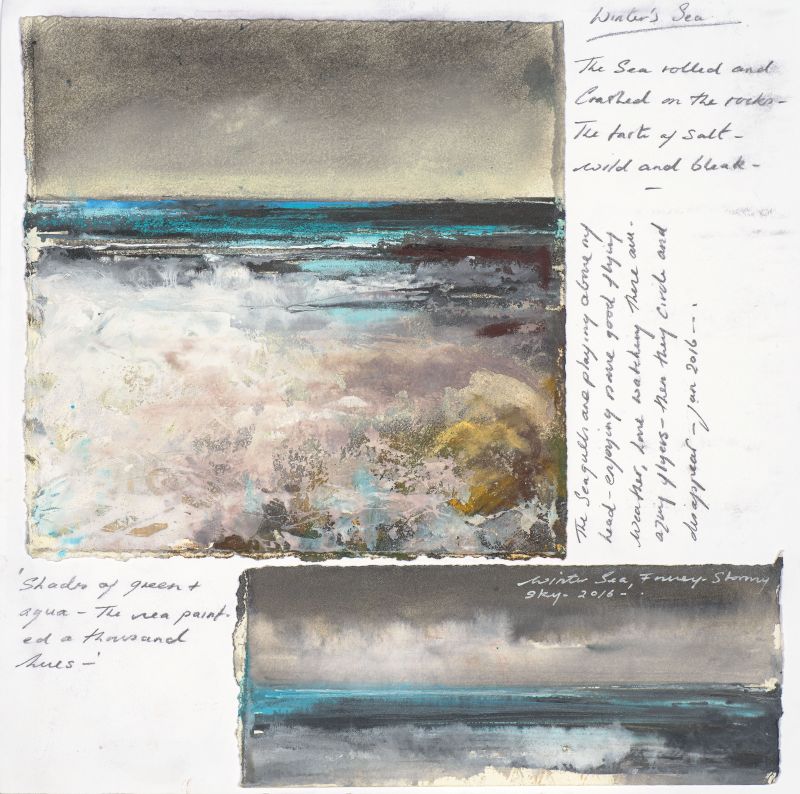 Winter's Sea
The Sea rolled and
Crashed on the rocks -
The taste of salt -
wild and bleak -
The Seagulls are playing above my
head - enjoying some good flying
weather, love watching there
flyers - then they circle and
disappear - Jan 2016 - .
'Shades of green +
aqua - The sea paint-
ed a thousand
hues - '
Winter Sea, Stormy
Sky - 2016 -